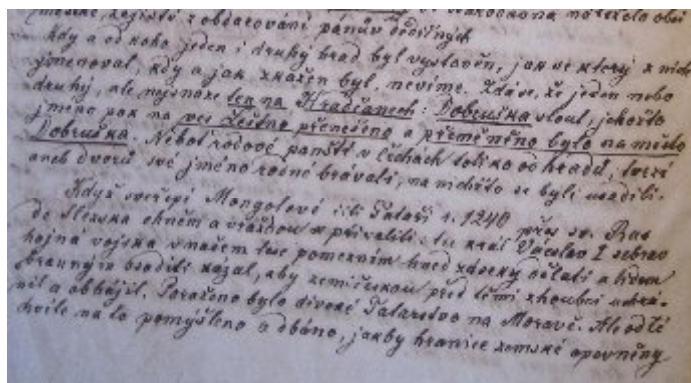 městské, zejistě z obdarování pánův dědičných
Kdy a od koho jeden i druhý hrad byl vystavěn, jak se který z nich
jmenoval, kdy a jak zkažen byl, nevíme. Zdá se, že jeden nebo
druhý, ale nejsnáze ten na Hradčanech: Dobruška sloul, jehožto
jméno pak na ves Leštno přenešeno a přeměněno bylo na město
Dobruška. Neboť rodové panští v Čechách toliko od hradů, tvrzí
aneb dvorů své jméno rodné brávali, na nichžto se byli usadili.
Když sveřepí Mongolové čili Tataři r. 1240 přes sv. Rus
do Slezska ohněm a vraždou se přivalili: tu král Václav I sebrav
hojna vojska v našem lese pomezním hned záseky dělati a lidem
branným osaditi kázal, aby zemi českou před těmi zhoubci uchrá-
nil a obhájil. Poraženo bylo divoké Tatarstvo na Moravě. Ale od té
chvíle na to pomýšleno a dbáno, jakby hranice zemské opevněny